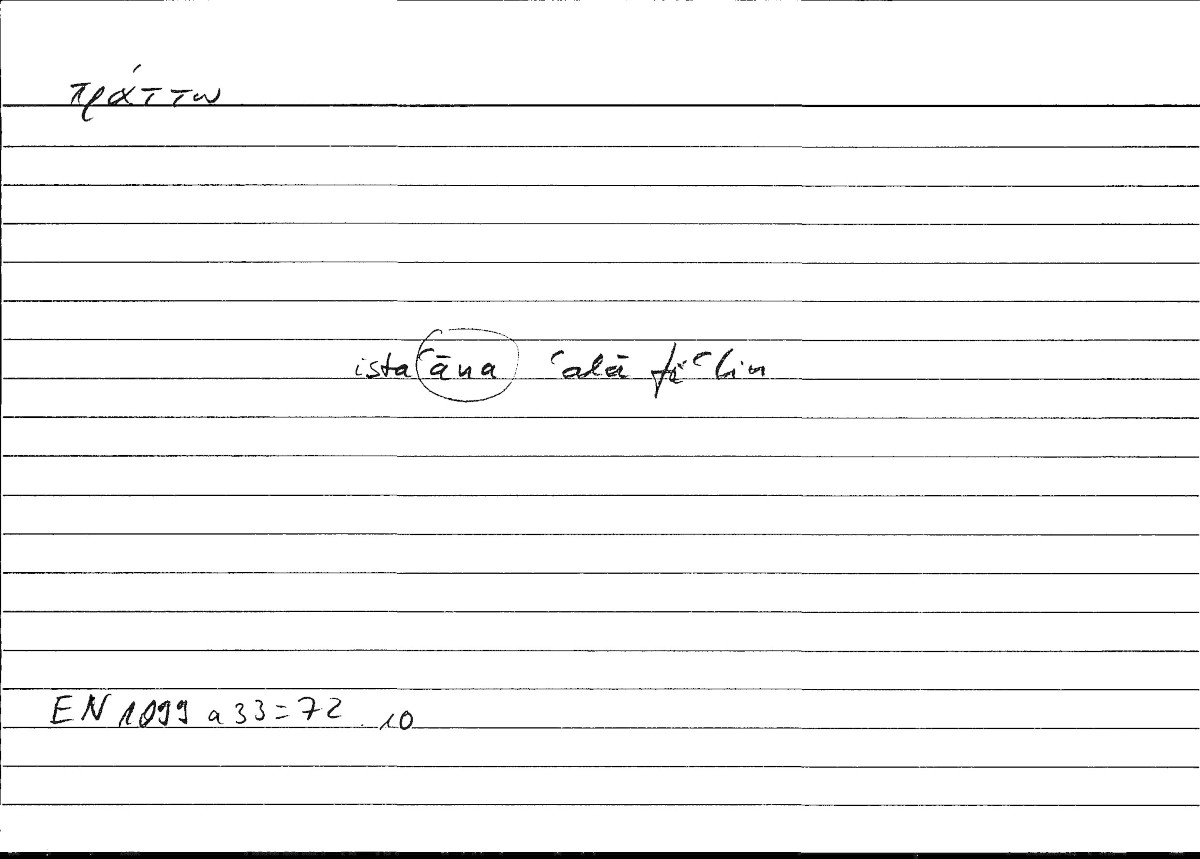 πράττω
istaʿāna ʿalā fiʿlin
EN 1099 a 33 = 72.10